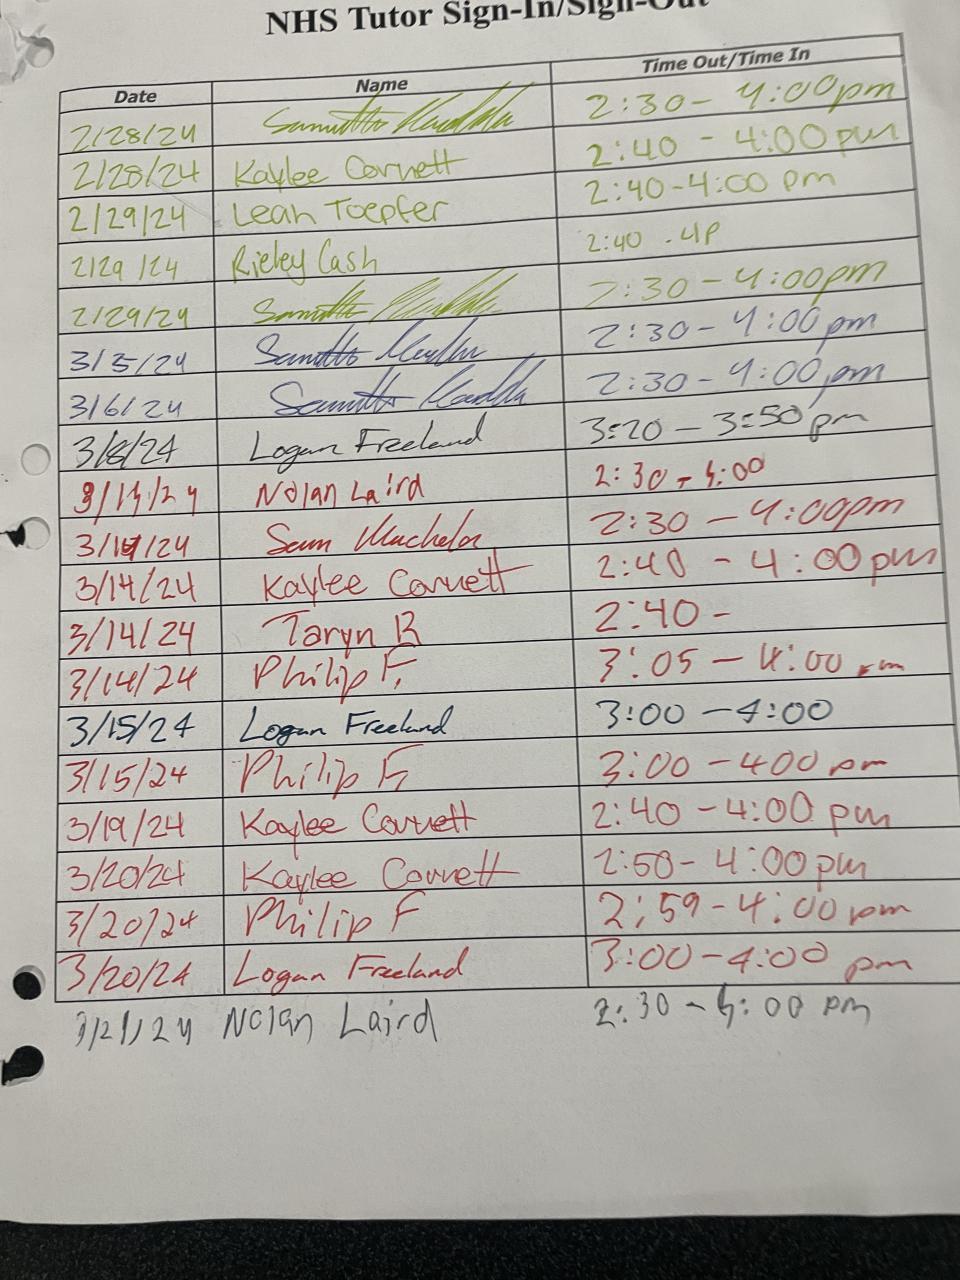 NHS Tutor Sign-In/Sign-Out
Date Name Time Out/Time In
2/28/24 2:30 - 4:00pm
2/28/24 Kaylee Cornett 2:40 - 4:00 pm
2/29/24 Leah Toepfer 2:40-4:00 pm
2/29/24 Rieley Cash 2:40 - 4P
2/29/24 2:30 - 4:00pm
3/5/24 2:30 - 4:00 pm
3/6/24 2:30 - 4:00 pm
3/8/24 Logan Freeland 3:20 - 3:50 pm
3/13/24 Nolan Laird 2:30 - 4:00
3/14/24 Sam 2:30 - 4:00pm
3/14/24 Kaylee Cornett 2:40 - 4:00 pm
3/14/24 Taryn B 2:40 -
3/14/24 Philip F. 3:05 - 4:00 pm
3/15/24 Logan Freeland 3:00 - 4:00
3/15/24 Philip F. 3:00 - 400 pm
3/19/24 Kaylee Cornett 2:40 - 4:00 pm
3/20/24 Kaylee Cornett 2:50 - 4:00 pm
3/20/24 Philip F 2:59 - 4:00 pm
3/20/24 Logan Freeland 3:00 - 4:00 pm
3/21/24 Nolan Laird 2:30 - 4:00 pm